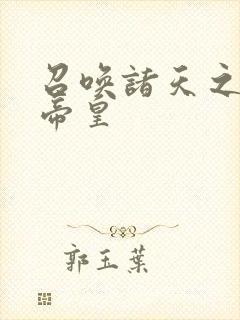 召唤諸天之
帝皇
郭玉葉